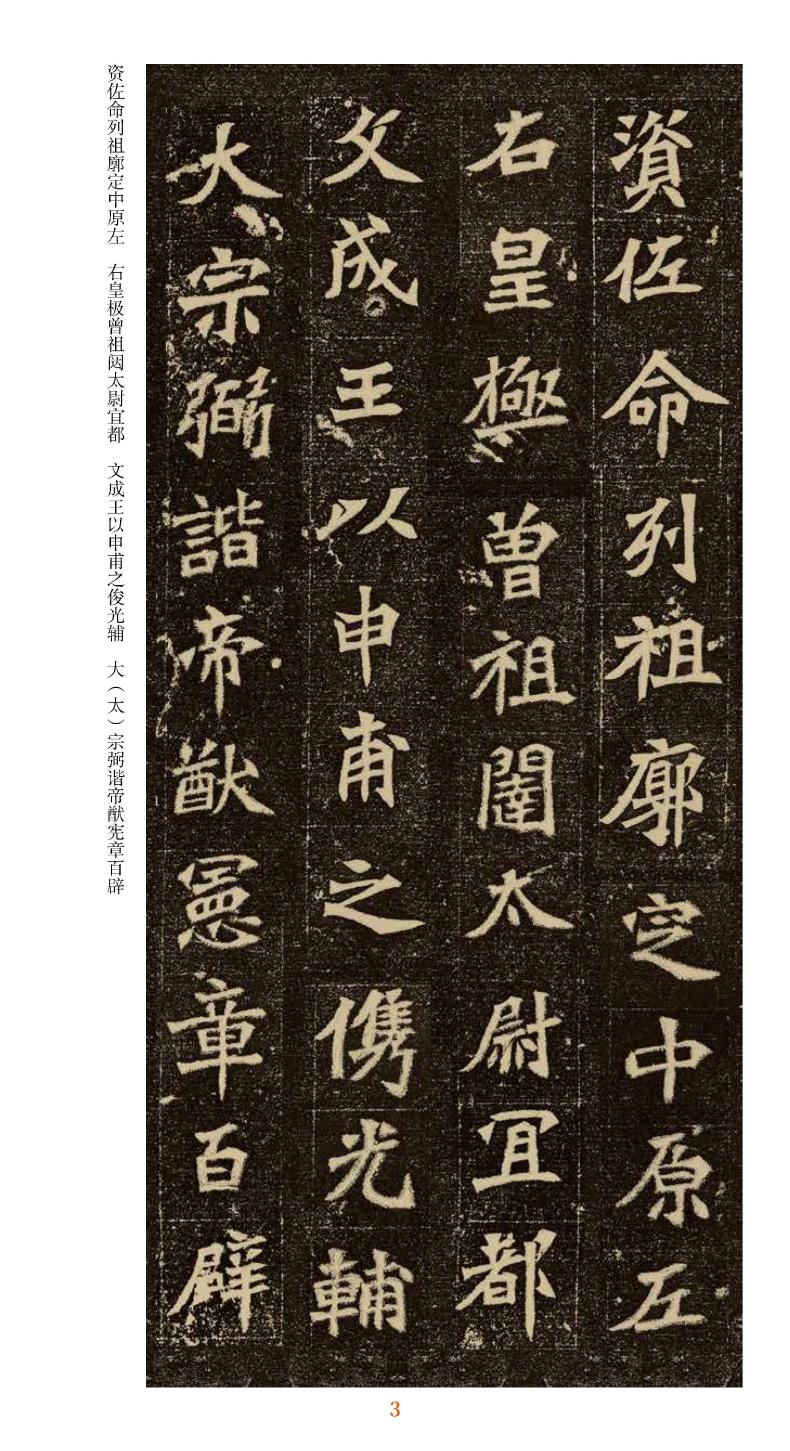 資佐命列祖廓定中原左
右皇極曾祖闥太尉宜都
文成王以申甫之儁光輔
大宗弼諧帝猷憲章百辟
资佐命列祖廓定中原左　右皇极曾祖闼太尉宜都　文成王以申甫之俊光辅　大（太）宗弼谐帝猷宪章百辟
3